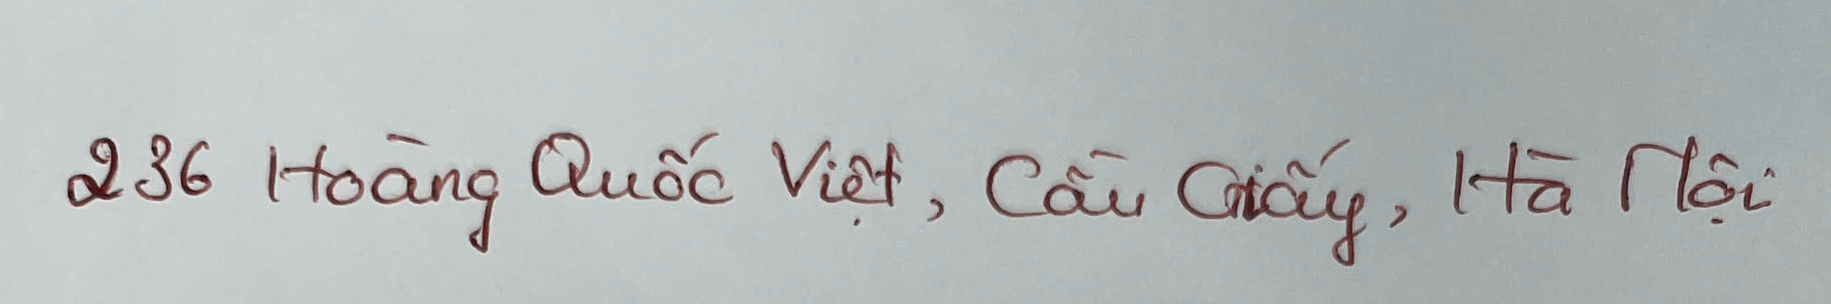 236 Hoàng Quốc Việt, Cầu Giấy, Hà Nội